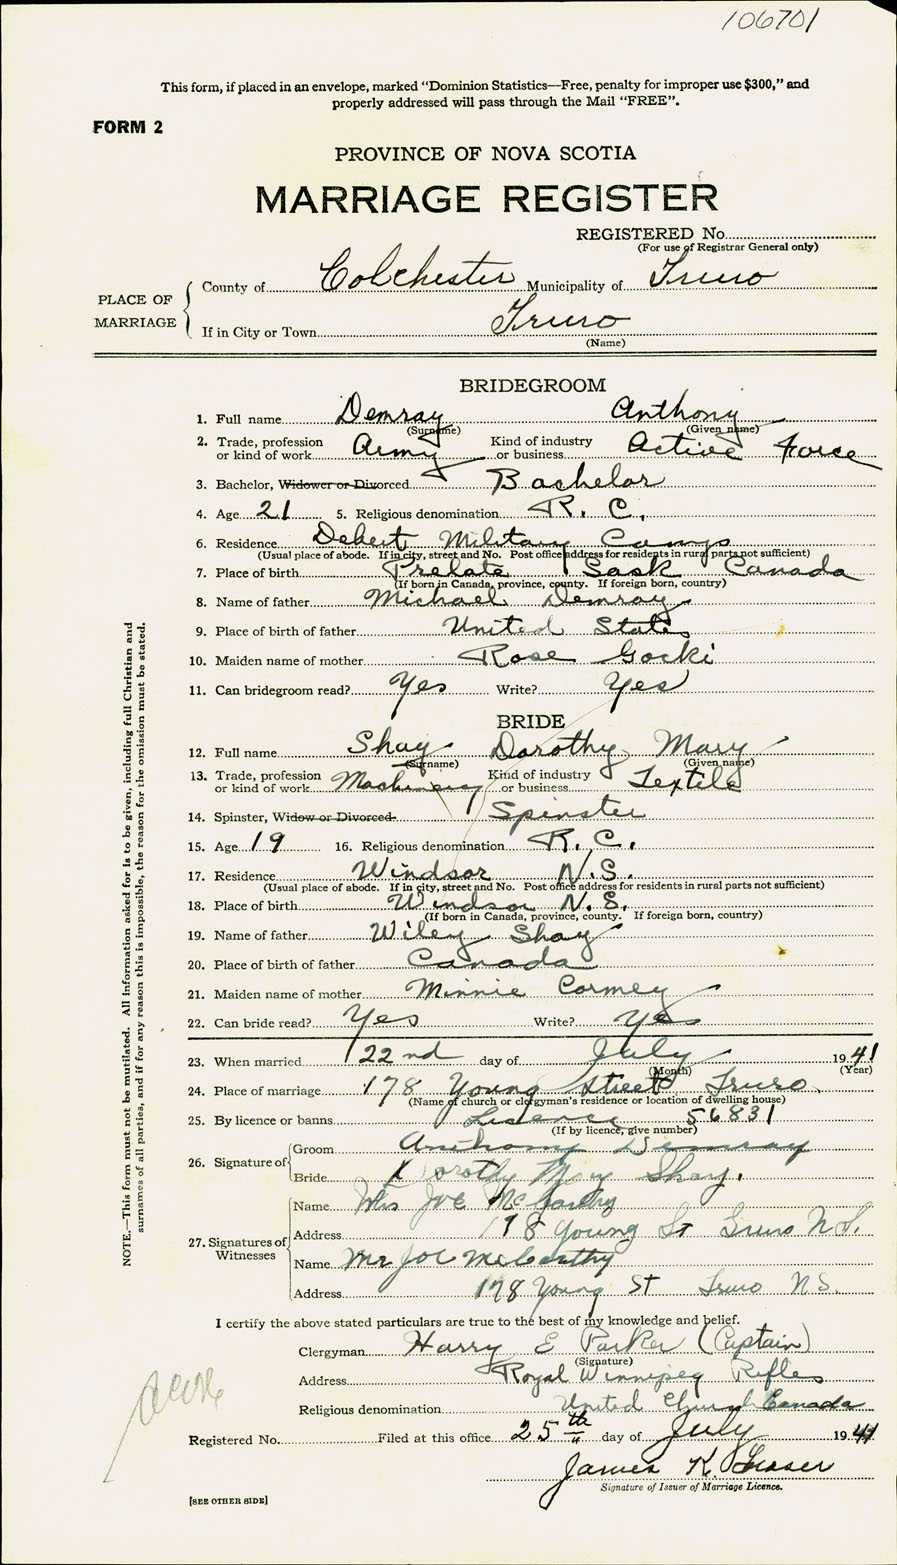 106701
This form, if placed in an envelope, marked “Dominion Statistics—Free, penalty for improper use $300,” and
properly addressed will pass through the Mail “FREE”.
FORM 2
PROVINCE OF NOVA SCOTIA
MARRIAGE REGISTER
REGISTERED No.
(For use of Registrar General only)
PLACE OF MARRIAGE
County of Colchester Municipality of Truro
If in City or Town Truro
(Name)
BRIDEGROOM
1. Full name Demray Anthony
(Surname) (Given name)
2. Trade, profession or kind of work Army Kind of industry or business Active Force
3. Bachelor, Widower or Divorced Bachelor
4. Age 21 5. Religious denomination R. C.
6. Residence Debert Military Camp
(Usual place of abode. If in city, street and No. Post office address for residents in rural parts not sufficient)
7. Place of birth Prelate Sask Canada
(If born in Canada, province, county. If foreign born, country)
8. Name of father Michael Demray
9. Place of birth of father United States
10. Maiden name of mother Rose Gocki
11. Can bridegroom read? Yes Write? Yes
BRIDE
12. Full name Shay Dorothy Mary
(Surname) (Given name)
13. Trade, profession or kind of work Machinery Kind of industry or business Textile
14. Spinster, Widow or Divorced Spinster
15. Age 19 16. Religious denomination R. C.
17. Residence Windsor N.S.
(Usual place of abode. If in city, street and No. Post office address for residents in rural parts not sufficient)
18. Place of birth Windsor N.S.
(If born in Canada, province, county. If foreign born, country)
19. Name of father Wiley Shay
20. Place of birth of father Canada
21. Maiden name of mother Minnie Cormey
22. Can bride read? Yes Write? Yes
23. When married 22nd day of July 1941
(Month) (Year)
24. Place of marriage 178 Young Street Truro
(Name of church or clergyman's residence or location of dwelling house)
25. By licence or banns Licence 56831
(If by licence, give number)
26. Signature of
Groom Anthony Demray
Bride Dorothy Mary Shay.
27. Signatures of Witnesses
Name Mrs Joe McCarthy
Address 178 Young St Truro N.S.
Name Mr Joe McCarthy
Address 178 Young St Truro N.S.
I certify the above stated particulars are true to the best of my knowledge and belief.
Clergyman Harry E Parker (Captain)
(Signature)
Address Royal Winnipeg Rifles
Religious denomination United Church Canada
Registered No. Filed at this office 25th day of July 1941
James K. Fraser
Signature of Issuer of Marriage Licence.
[SEE OTHER SIDE]
NOTE.—This form must not be mutilated. All information asked for is to be given, including full Christian and
surnames of all parties, and if for any reason this is impossible, the reason for the omission must be stated.